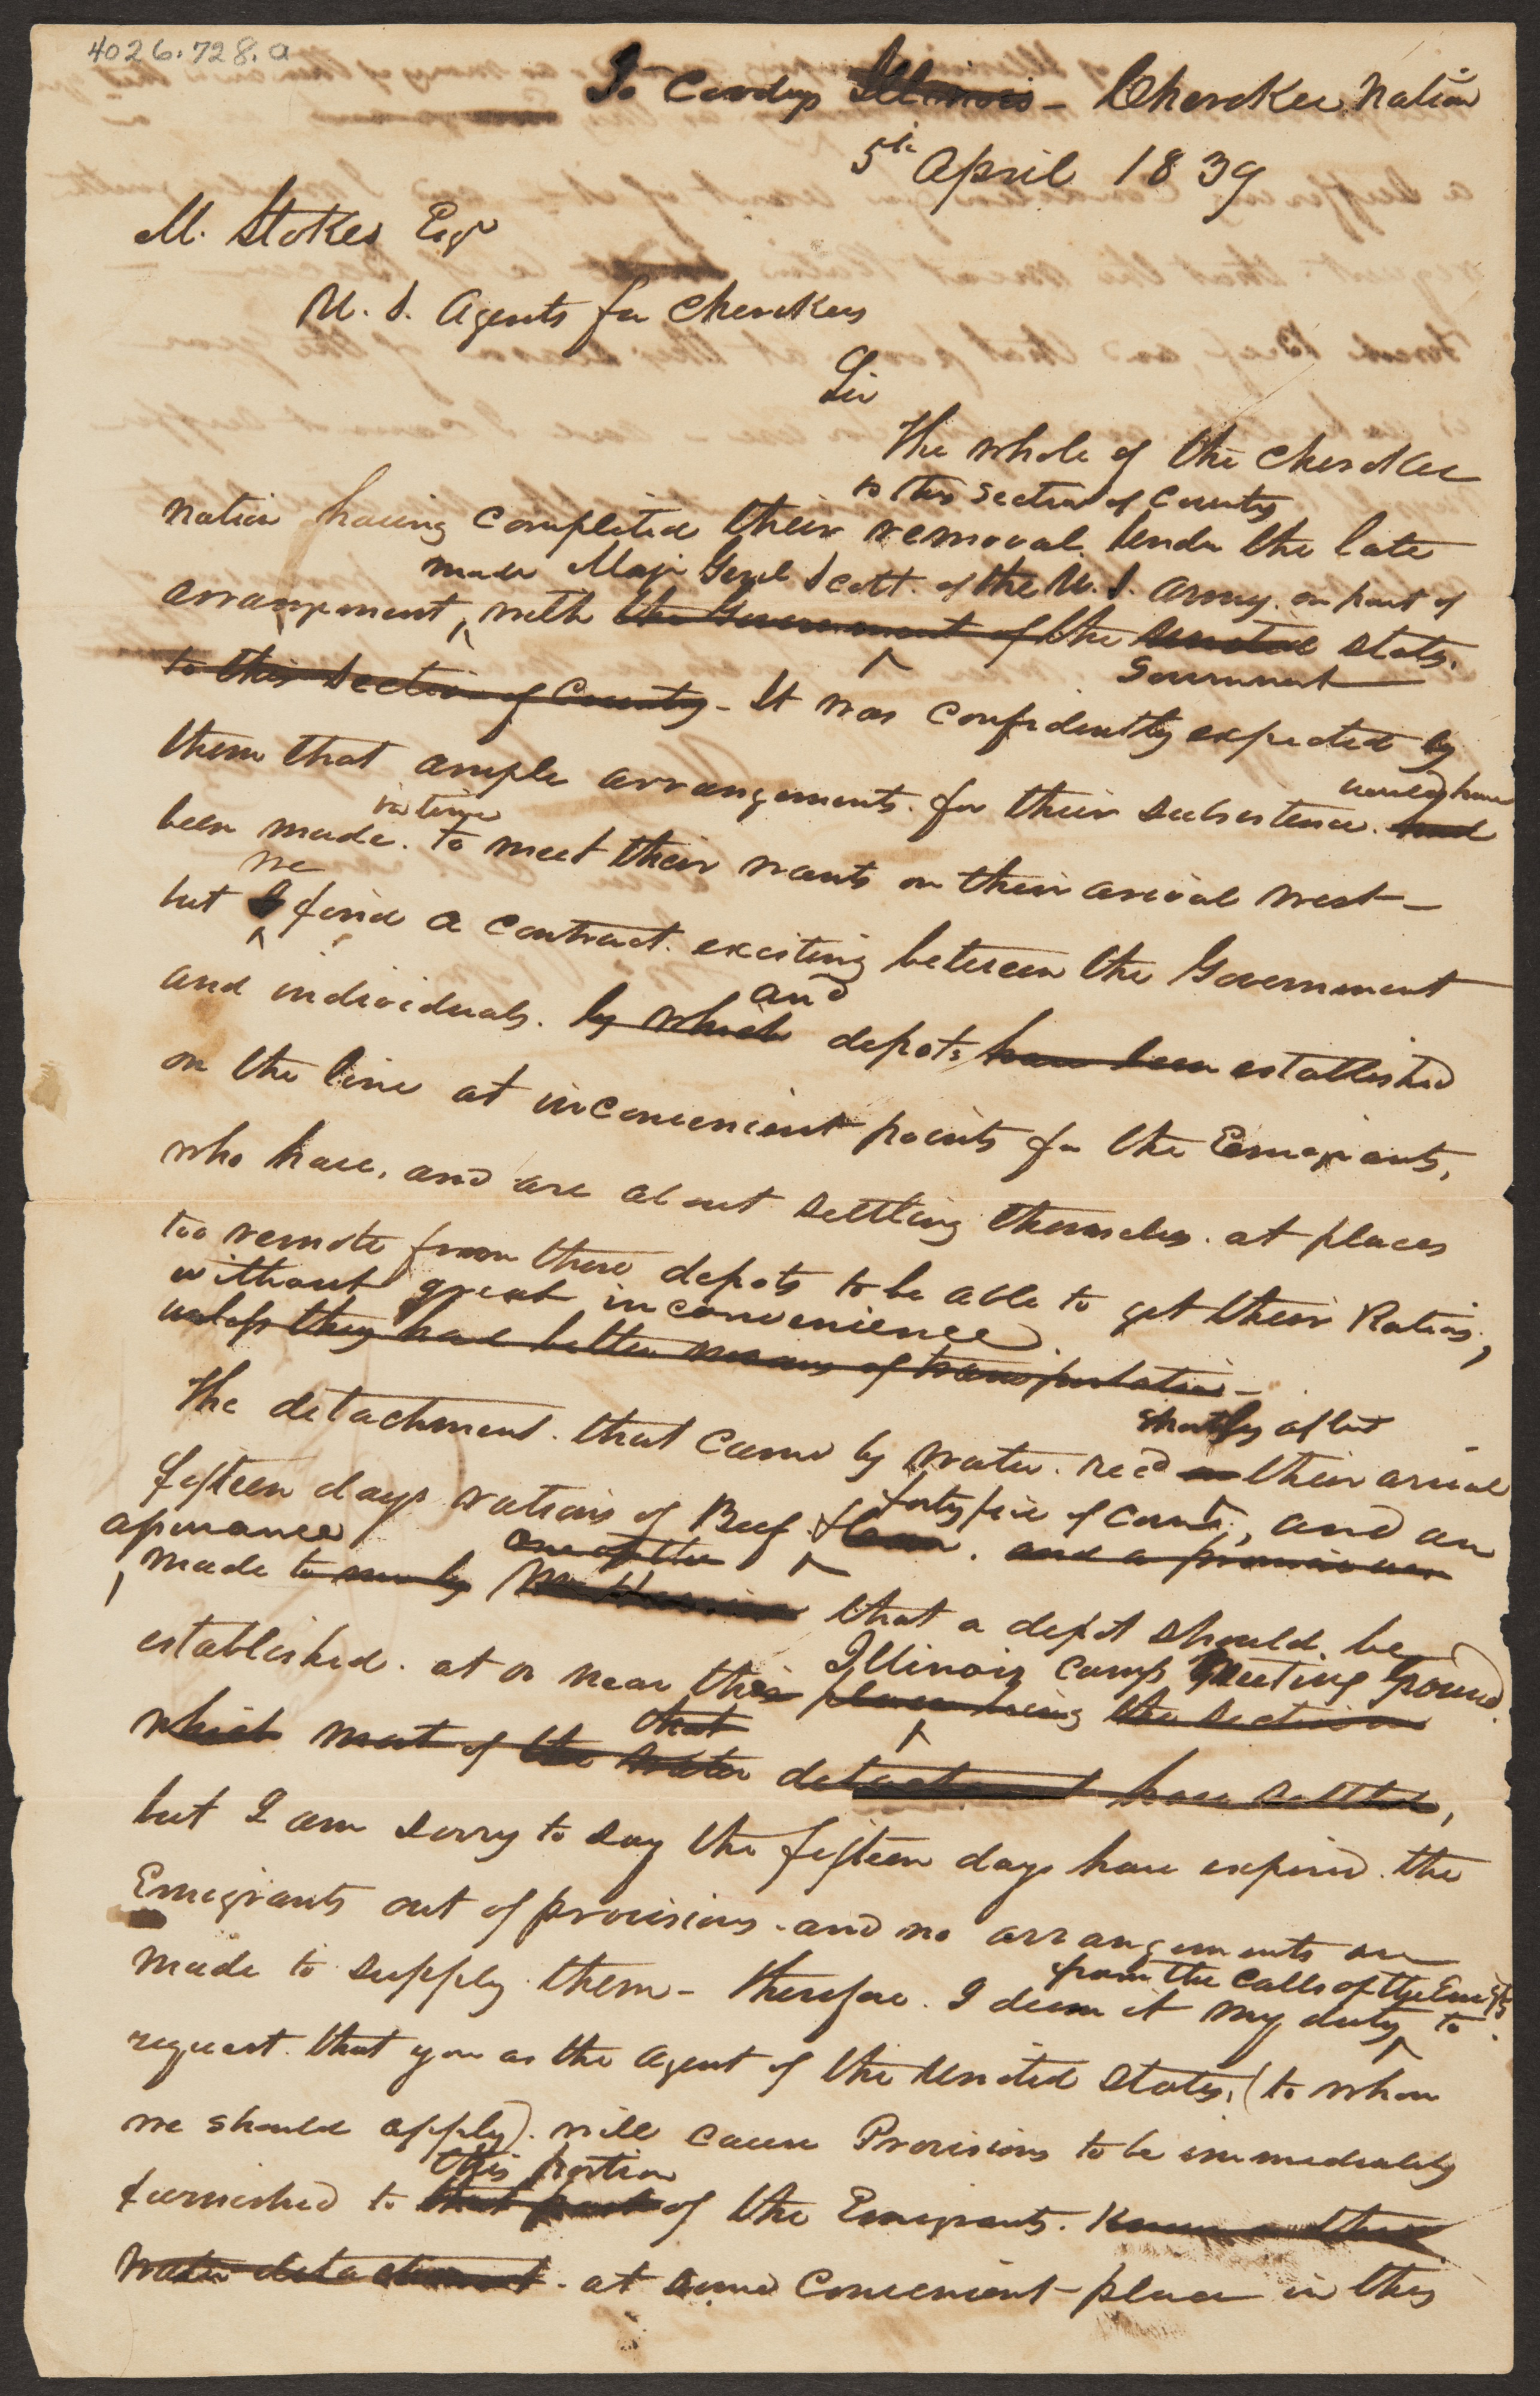 4026.728.a
To Candys Illinois - Cherokee Nation
5th April 1839
M. Stokes Esqr
U. S. Agents for Cherokees
Sir
The whole of the Cherokee
to this section of County
nation having completed their removal under the late
made Maj Genl Scott. of the U. S. Army. on part of
arrangement, with the Government of the United States.
Government
to this Section of County - It was confidently expected by
them that ample arrangements. for their subsistence. had
would have
in time
been made. to meet their wants on their arival west -
we
but I find a contract. existing between the Government
and
and individuals. by which depots have been established
on the line at inconvenient points for the Emigrants,
who have. and are about settling themselves. at places
too remote from these depots to be able to get their Rations,
without great inconvenience
unless they had better means of transportation -
shortly after
The detachment. that came by water. recd on their arival
forty five of corn, and an
fifteen days rations of Beef & Corn. and a promise was
apurance
one of the
made to me by that a depot should. be
Illinois Camp Meeting Ground.
established. at or near this place being the section
that
which most of the water detachment have settled,
but I am sorry to say the fifteen days have expired. the
Emigrants out of provisions. and no arrangements are
made to supply them - therefore. I deem it my duty to
from the Calls of the Emigts
request. that you as the agent of the United States, (to whom
we should apply). will cause Provisions to be immediately
this portion
furnished to that part of the Emigrants. Known as the
water detachment. at some convenient place in this